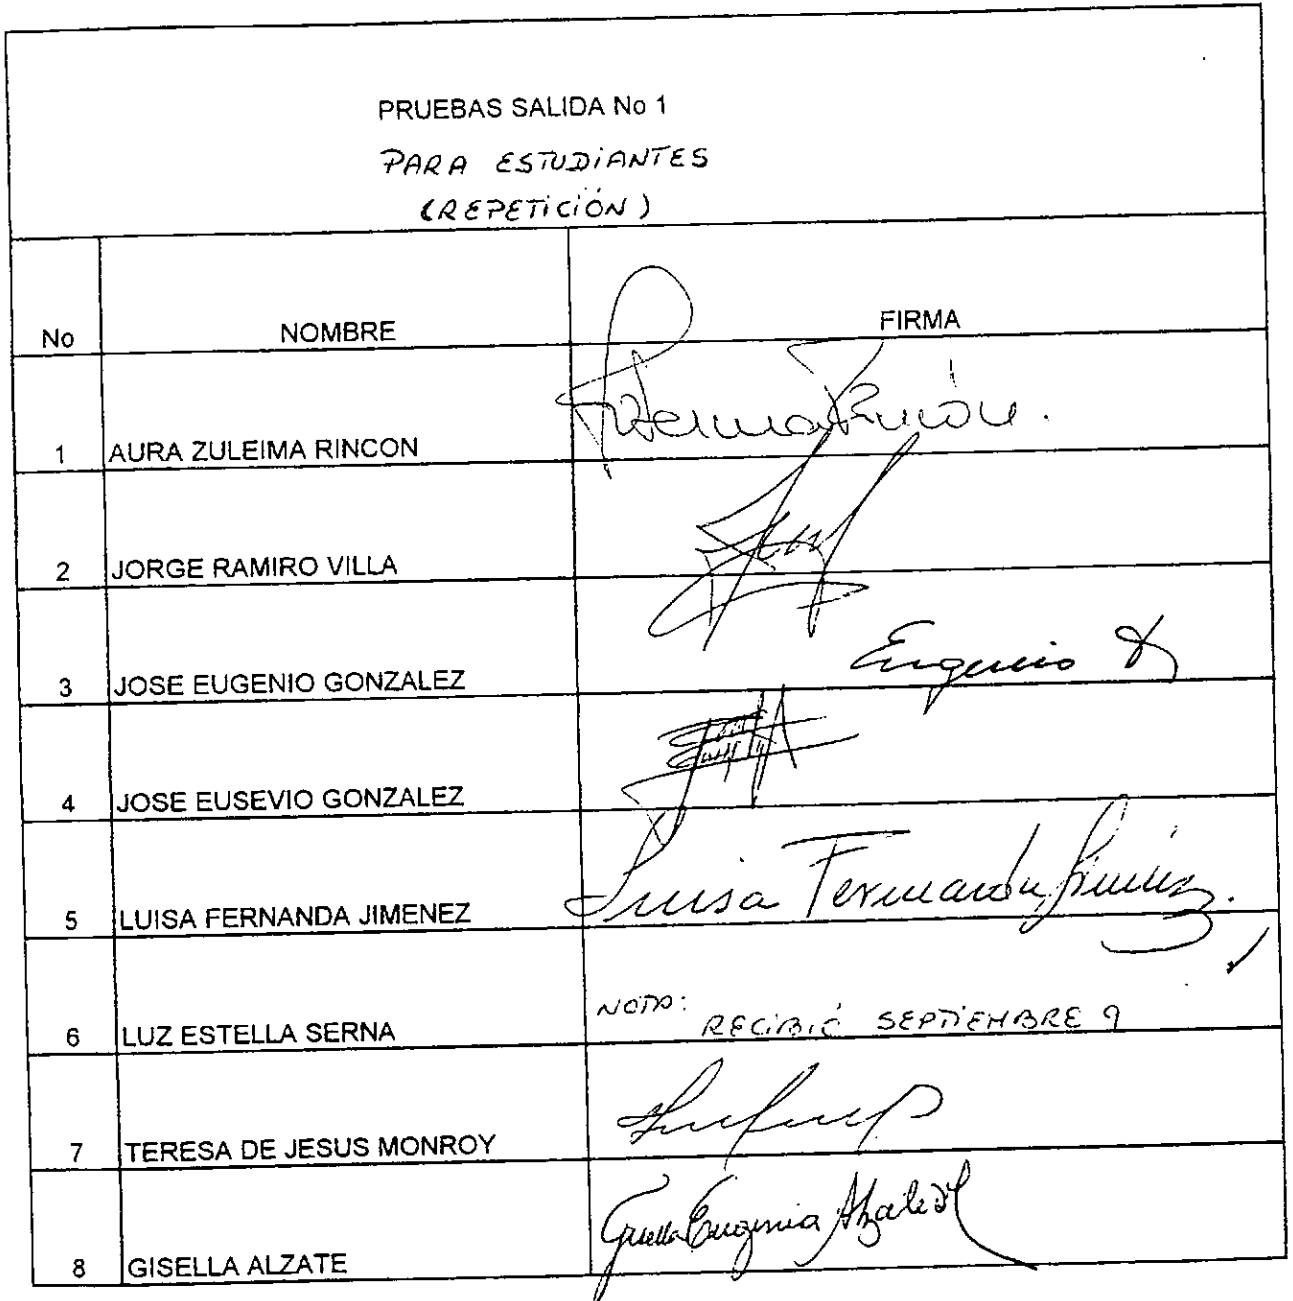 PRUEBAS SALIDA No 1
PARA ESTUDIANTES
(REPETICIÓN)
No NOMBRE FIRMA
1 AURA ZULEIMA RINCON Zuleima Rincón.
2 JORGE RAMIRO VILLA
3 JOSE EUGENIO GONZALEZ Eugenio
4 JOSE EUSEVIO GONZALEZ
5 LUISA FERNANDA JIMENEZ Luisa Fernanda Jiménez.
6 LUZ ESTELLA SERNA NOTA: RECIBIÓ SEPTIEMBRE 9
7 TERESA DE JESUS MONROY
8 GISELLA ALZATE Gisella Eugenia Alzate